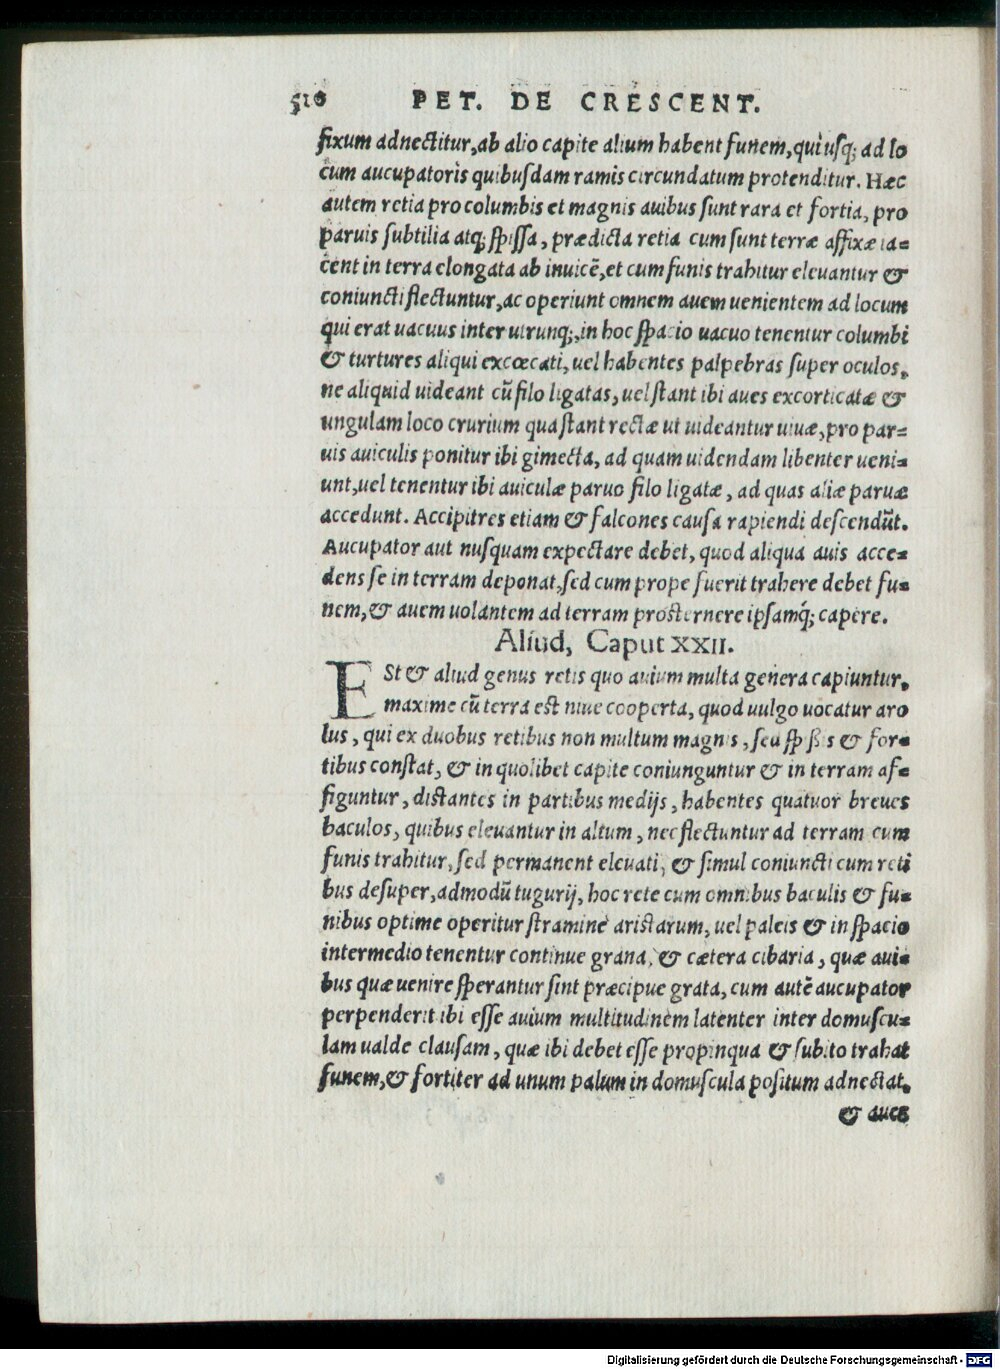 510 PET. DE CRESCENT.
fixum adnectitur, ab alio capite alium habent funem, qui usq; ad lo
cum aucupatoris quibusdam ramis circundatum protenditur. Hæc
autem retia pro columbis et magnis auibus sunt rara et fortia, pro
paruis subtilia atq; spissa, prædicta retia cum sunt terræ affixæ ia=
cent in terra elongata ab inuicē, et cum funis trahitur eleuantur &
coniuncti flectuntur, ac operiunt omnem auem uenientem ad locum
qui erat uacuus inter utrunq;, in hoc spacio uacuo tenentur columbi
& turtures aliqui excœcati, uel habentes palpebras super oculos,
ne aliquid uideant cū filo ligatas, uel stant ibi aues excorticatæ &
ungulam loco crurium qua stant rectæ ut uideantur uiuæ, pro par=
uis auiculis ponitur ibi gimecta, ad quam uidendam libenter ueni=
unt, uel tenentur ibi auiculæ paruo filo ligatæ, ad quas aliæ paruæ
accedunt. Accipitres etiam & falcones causa rapiendi descendūt.
Aucupator aut nusquam expectare debet, quod aliqua auis acce=
dens se in terram deponat, sed cum prope fuerit trahere debet fu=
nem, & auem uolantem ad terram prosternere ipsamq́; capere.
Aliud, Caput XXII.
ESt & aliud genus retis quo auium multa genera capiuntur,
maxime cū terra est niue cooperta, quod uulgo uocatur aro
lus, qui ex duobus retibus non multum magnis, sed spissis & for=
tibus constat, & in quolibet capite coniunguntur & in terram af=
figuntur, distantes in partibus medijs, habentes quatuor breues
baculos, quibus eleuantur in altum, nec flectuntur ad terram cum
funis trahitur, sed permanent eleuati, & simul coniuncti cum reti
bus desuper, admodū tugurij, hoc rete cum omnibus baculis & fu=
nibus optime operitur stramine aristarum, uel paleis & in spacio
intermedio tenentur continue grana, & cætera cibaria, quæ aui=
bus quæ uenire sperantur sint præcipue grata, cum autē aucupator
perpenderit ibi esse auium multitudinem latenter inter domuscu=
lam ualde clausam, quæ ibi debet esse propinqua & subito trahat
funem, & fortiter ad unum palum in domuscula positum adnectat,
& aues
Digitalisierung gefördert durch die Deutsche Forschungsgemeinschaft - DFG